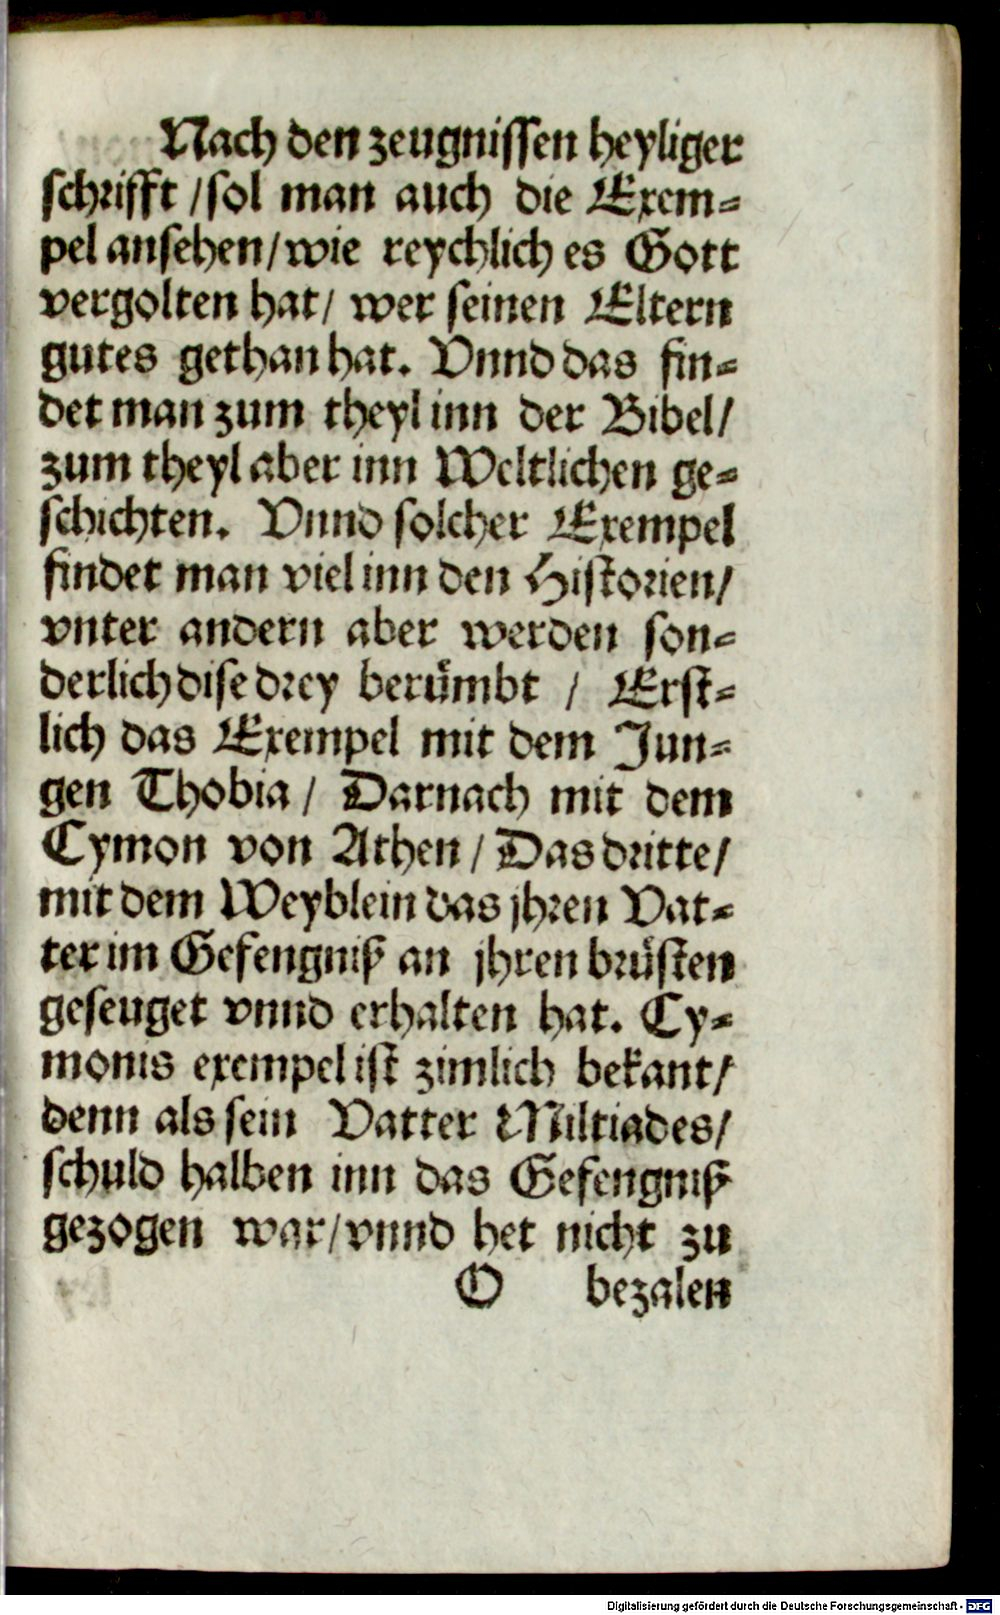 Nach den zeugnissen heyliger
schrifft / sol man auch die Exem-
pel ansehen / wie reychlich es Gott
vergolten hat / wer seinen Eltern
gutes gethan hat. Vnnd das fin-
det man zum theyl inn der Bibel /
zum theyl aber inn Weltlichen ge-
schichten. Vnnd solcher Exempel
findet man viel inn den Historien /
vnter andern aber werden son-
derlich dise drey berümbt / Erst-
lich das Exempel mit dem Jun-
gen Thobia / Darnach mit dem
Cymon von Athen / Das dritte /
mit dem Weyblein das jhren Vat-
ter im Gefengniß an jhren brüsten
geseuget vnnd erhalten hat. Cy-
monis exempel ist zimlich bekant /
denn als sein Vatter Miltiades /
schuld halben inn das Gefengniß
gezogen war / vnnd het nicht zu
O bezalen
Digitalisierung gefördert durch die Deutsche Forschungsgemeinschaft - DFG